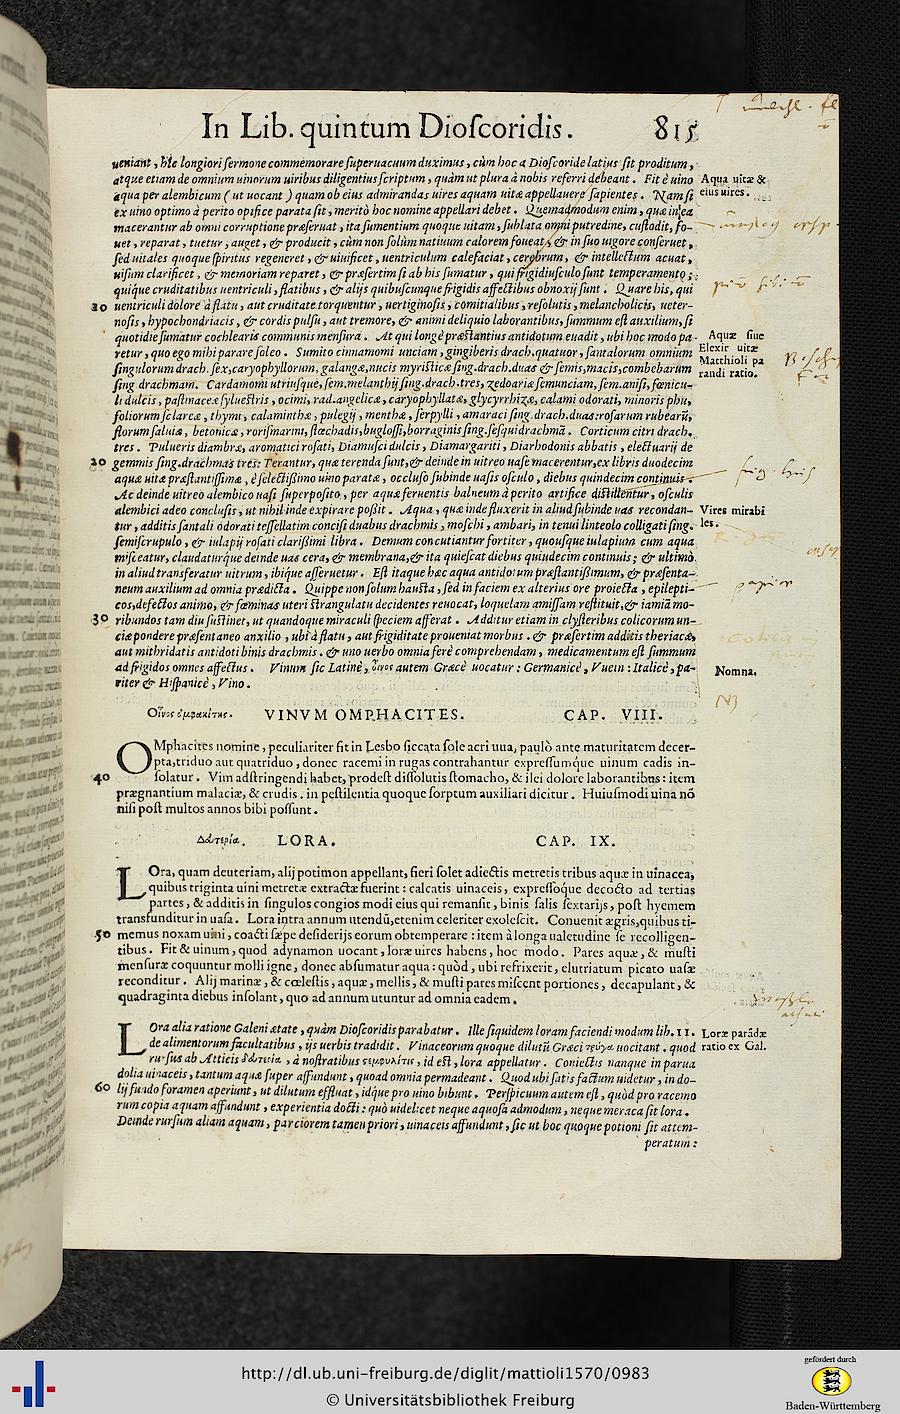 In Lib. quintum Dioſcoridis. 815
ueniant, hîc longiori ſermone commemorare ſuperuacuum duximus, cùm hoc a Dioſcoride latius ſit proditum,
atque etiam de omnium uinorum uiribus diligentius ſcriptum, quàm ut plura à nobis referri debeant. Fit è uino
aqua per alembicum (ut uocant) quam ob eius admirandas uires aquam uitæ appellauere ſapientes. Nam ſi
ex uino optimo à perito opifice parata ſit, meritò hoc nomine appellari debet. Quemadmodum enim, quæ in ea
macerantur ab omni corruptione præſeruat, ita ſumentium quoque uitam, ſublata omni putredine, cuſtodit, fo-
uet, reparat, tuetur, auget, & producit, cùm non ſolùm natiuum calorem foueat, & in ſuo uigore conſeruet,
ſed uitales quoque ſpiritus regeneret, & uiuificet, uentriculum calefaciat, cerebrum, & intellectum acuat,
uiſum clarificet, & memoriam reparet, & præſertim ſi ab his ſumatur, qui frigidiuſculo ſunt temperamento;
quíque cruditatibus uentriculi, flatibus, & alijs quibuſcunque frigidis affectibus obnoxij ſunt. Quare his, qui
10 uentriculi dolore à flatu, aut cruditate torquentur, uertiginoſis, comitialibus, reſolutis, melancholicis, ueter-
noſis, hypochondriacis, & cordis pulſu, aut tremore, & animi deliquio laborantibus, ſummum eſt auxilium, ſi
quotidie ſumatur cochlearis communis menſura. At qui longè præſtantius antidotum euadit, ubi hoc modo pa-
retur, quo ego mihi parare ſoleo. Sumito cinnamomi unciam, gingiberis drach. quatuor, ſantalorum omnium
ſingulorum drach. ſex, caryophyllorum, galangæ, nucis myriſticæ ſing. drach. duas & ſemis, macis, combebarum
ſing drachmam. Cardamomi utriuſque, ſem. melanthij ſing. drach. tres, zedoariæ ſemunciam, ſem. aniſi, fœnicu-
li dulcis, paſtinaceæ ſylueſtris, ocimi, rad. angelicæ, caryophyllatæ, glycyrrhizæ, calami odorati, minoris phu,
foliorum ſclareæ, thymi, calaminthæ, pulegij, menthæ, ſerpylli, amaraci ſing. drach. duas: roſarum rubearũ,
florum ſaluiæ, betonicæ, roriſmarini, ſtœchadis, bugloſſi, borraginis ſing. ſeſquidrachmā. Corticum citri drach.
tres. Pulueris diambræ, aromatici roſati, Diamuſci dulcis, Diamargariti, Diarhodonis abbatis, electuarij de
20 gemmis ſing. drachmas tres: Terantur, quæ terenda ſunt, & deinde in uitreo uaſe macerentur, ex libris duodecim
aquæ uitæ præſtantiſſimæ, è ſelectiſſimo uino paratæ, occluſo ſubinde uaſis oſculo, diebus quindecim continuis.
Ac deinde uitreo alembico uaſi ſuperpoſito, per aquæ feruentis balneum à perito artifice diſtillentur, oſculis
alembici adeo concluſis, ut nihil inde expirare poſſit. Aqua, quæ inde fluxerit in aliud ſubinde uas recondan-
tur, additis ſantali odorati teſſellatim conciſi duabus drachmis, moſchi, ambari, in tenui linteolo colligati ſing.
ſemiſcrupulo, & iulapij roſati clariſſimi libra. Demum concutiantur fortiter, quouſque iulapium cum aqua
miſceatur, claudatúrque deinde uas cera, & membrana, & ita quieſcat diebus quindecim continuis; & ultimò
in aliud transferatur uitrum, ibíque aſſeruetur. Eſt itaque hæc aqua antidotum præſtantiſſimum, & præſenta-
neum auxilium ad omnia prædicta. Quippe non ſolum hauſta, ſed in faciem ex alterius ore proiecta, epilepti-
cos, defectos animo, & fœminas uteri ſtrangulatu decidentes reuocat, loquelam amiſſam reſtituit, & iamiā mo-
30 ribundos tam diu ſuſtinet, ut quandoque miraculi ſpeciem afferat. Additur etiam in clyſteribus colicorum un-
ciæ pondere præſentaneo auxilio, ubi à flatu, aut frigiditate proueniat morbus. & præſertim additis theriacæ,
aut mithridatis antidoti binis drachmis. & uno uerbo omnia ferè comprehendam, medicamentum eſt ſummum
ad frigidos omnes affectus. Vinum ſic Latinè, οἶνος autem Græcè uocatur: Germanicè, Vuein: Italicè, pa-
riter & Hiſpanicè, Vino.
Aqua uitæ &
eius uires.
Aquæ ſiue
Elexir uitæ
Matthioli pa
randi ratio.
Vires mirabi
les.
Nomna.
Οἶνος ὀμφακίτης. VINVM OMPHACITES. CAP. VIII.
OMphacites nomine, peculiariter fit in Lesbo ſiccata ſole acri uua, paulò ante maturitatem decer-
pta, triduo aut quatriduo, donec racemi in rugas contrahantur expreſſumq́ue uinum cadis in-
40 ſolatur. Vim adſtringendi habet, prodeſt diſſolutis ſtomacho, & ilei dolore laborantibus: item
prægnantium malaciæ, & crudis. in peſtilentia quoque ſorptum auxiliari dicitur. Huiuſmodi uina nō
niſi poſt multos annos bibi poſſunt.
Δευτερία. LORA. CAP. IX.
LOra, quam deuteriam, alij potimon appellant, fieri ſolet adiectis metretis tribus aquæ in uinacea,
quibus triginta uini metretæ extractæ fuerint: calcatis uinaceis, expreſſoq́ue decocto ad tertias
partes, & additis in ſingulos congios modi eius qui remanſit, binis ſalis ſextarijs, poſt hyemem
transfunditur in uaſa. Lora intra annum utendũ, etenim celeriter exoleſcit. Conuenit ægris, quibus ti-
50 memus noxam uini, coacti ſæpe deſiderijs eorum obtemperare: item à longa ualetudine ſe recolligen-
tibus. Fit & uinum, quod adynamon uocant, loræ uires habens, hoc modo. Pares aquæ, & muſti
menſuræ coquuntur molli igne, donec abſumatur aqua: quòd, ubi refrixerit, elutriatum picato uaſæ
reconditur. Alij marinæ, & cœleſtis, aquæ, mellis, & muſti pares miſcent portiones, decapulant, &
quadraginta diebus inſolant, quo ad annum utuntur ad omnia eadem.
LOra alia ratione Galeni ætate, quàm Dioſcoridis parabatur. Ille ſiquidem loram faciendi modum lib. 11.
de alimentorum facultatibus, ijs uerbis tradidit. Vinaceorum quoque dilutũ Græci τρύγα uocitant. quod
rurſus ab Atticis δευτερία, à noſtratibus ςεμφυλίτις, id eſt, lora appellatur. Coniectis nanque in parua
dolia uinaceis, tantum aquæ ſuper affundunt, quoad omnia permadeant. Quod ubi ſatis factum uidetur, in do-
60 lij fundo foramen aperiunt, ut dilutum effluat, idq́ue pro uino bibunt. Perſpicuum autem eſt, quòd pro racemo
rum copia aquam affundunt, experientia docti: quò uidelicet neque aquoſa admodum, neque meraca ſit lora.
Deinde rurſum aliam aquam, parciorem tamen priori, uinaceis affundunt, ſic ut hoc quoque potioni ſit attem-
peratum:
Loræ parādæ
ratio ex Gal.
http://dl.ub.uni-freiburg.de/diglit/mattioli1570/0983
© Universitätsbibliothek Freiburg
gefördert durch
Baden-Württemberg